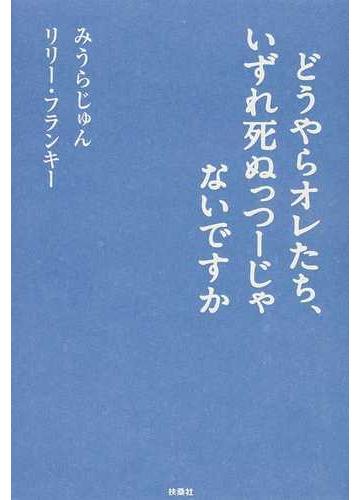 どうやらオレたち、
いずれ死ぬっつーじゃ
ないですか
みうらじゅん
リリー・フランキー
扶桑社